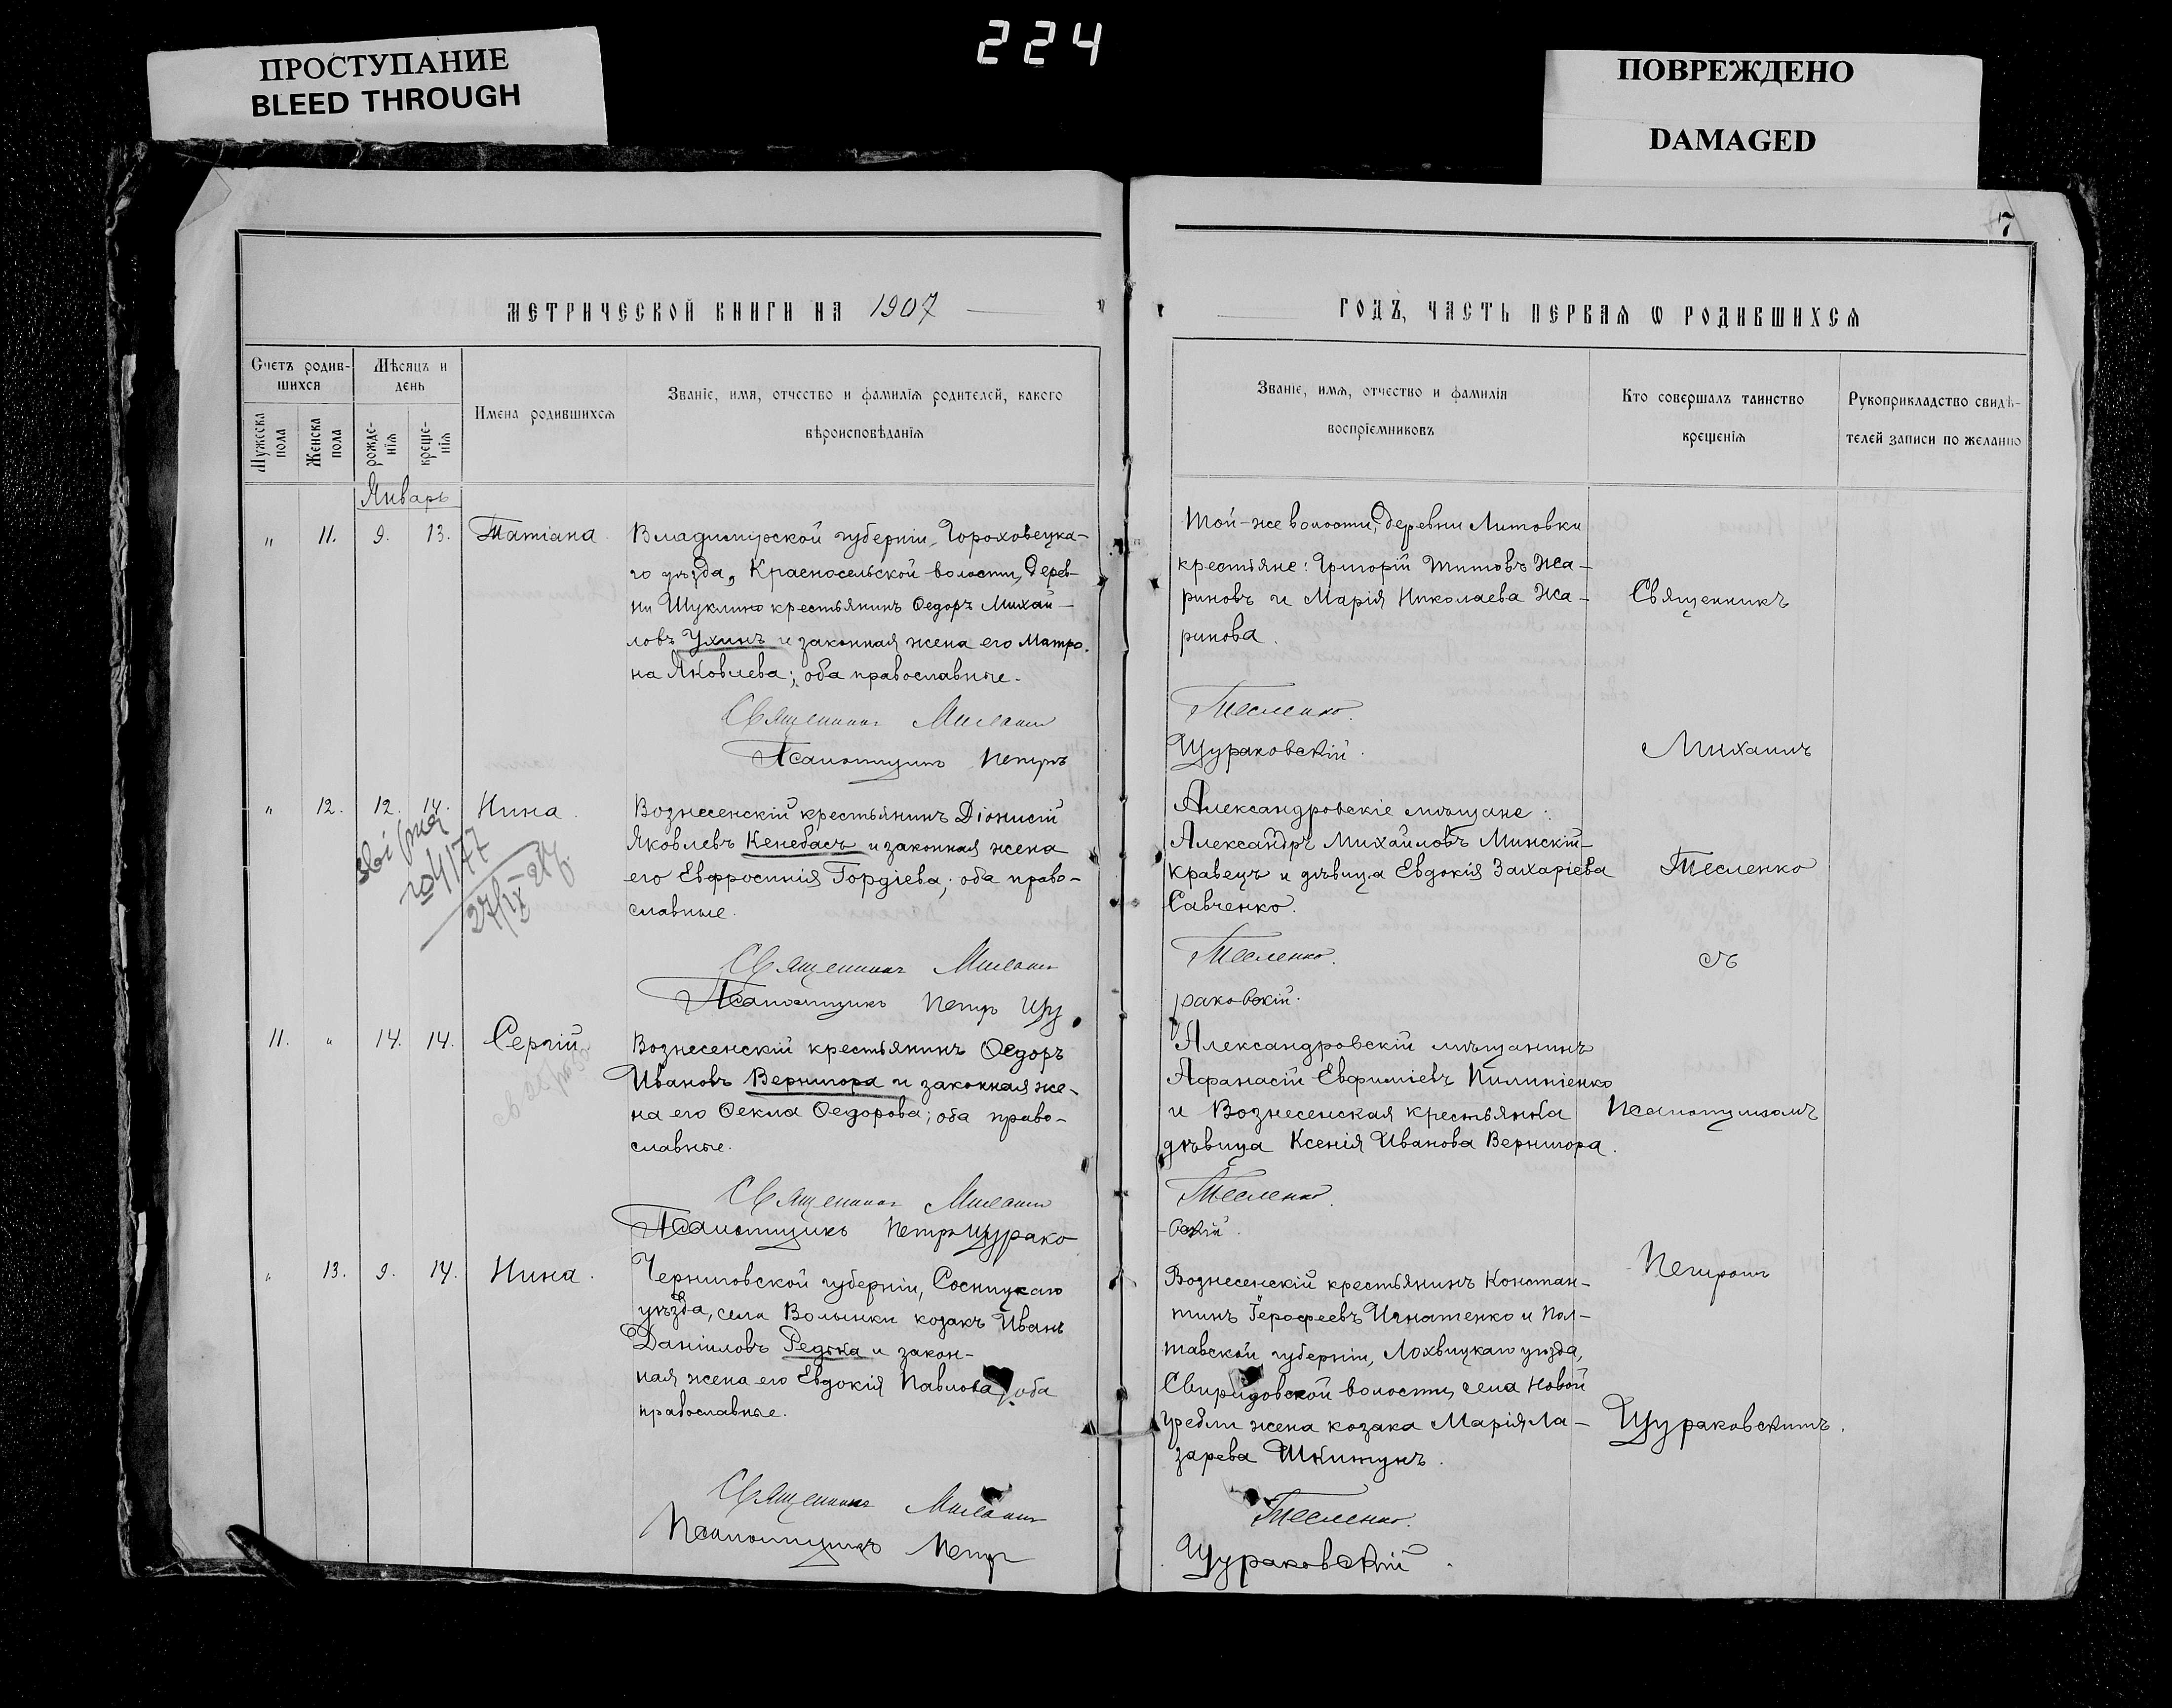 ПРОСТУПАНИЕ
BLEED THROUGH
224
ПОВРЕЖДЕНО
DAMAGED
7
МЕТРИЧЕСКОЙ КНИГИ НА 1907
ГОДЪ, ЧАСТЬ ПЕРВАЯ Ѡ РОДИВШИХСЯ
Счетъ родив-
шихся
Мѣсяцъ и
день
Мужеска
пола
Женска
пола
рожде-
нія
креще-
нія
Имена родившихся
Званіе, имя, отчество и фамилія родителей, какого
вѣроисповѣданія
Званіе, имя, отчество и фамилія
воспріемниковъ
Кто совершалъ таинство
крещенія
Рукоприкладство свидѣ-
телей записи по желанію
Январь
" 11. 9. 13. Татіана.
Владимірской губерніи, Гороховецка-
го уѣзда, Красносельской волости, дерев-
ни Шуклино крестьянинъ Ѳедоръ Михай-
ловъ Ухинъ и законная жена его Матро-
на Яковлева; оба православные.
Священникъ Михаилъ
Псаломщикъ Петръ
Той-же волости, деревни Литовки
крестьяне: Григорій Титовъ Жа-
риновъ и Марія Николаева Жа-
ринова.
Тесленко.
Щураковскій.
Священникъ
Михаилъ
" 12. 12. 14. Нина.
27/IX
Вознесенскій крестьянинъ Діонисій
Яковлевъ Кенебасъ и законная жена
его Евфросинія Гордіева; оба право-
славные.
Священникъ Михаилъ
Псаломщикъ Петръ Щу
Александровскіе мѣщане:
Александръ Михайловъ Минскій-
Кравецъ и дѣвица Евдокія Захаріева
Савченко.
Тесленко.
раковскій.
Тесленко
съ
11. " 14. 14. Сергій
Вознесенскій крестьянинъ Ѳедоръ
Ивановъ Вернигора и законная же-
на его Ѳекла Ѳедорова; оба право-
славные.
Священникъ Михаилъ
Псаломщикъ Петръ Щурако
Александровскій мѣщанинъ
Афанасій Евфиміевъ Пилипіенко
и Вознесенская крестьянка
дѣвица Ксенія Иванова Вернигора.
Тесленко.
вскій.
Псаломщикомъ
" 13. 9. 14. Нина.
Черниговской губерніи, Сосницкаго
уѣзда, села Волынки козакъ Иванъ
Даніиловъ Редька и закон-
ная жена его Евдокія Павлова; оба
православные.
Священникъ Михаилъ
Псаломщикъ Петръ
Вознесенскій крестьянинъ Констан-
тинъ Іерофеевъ Игнатенко и Пол-
тавской губерніи, Лохвицкаго уѣзда,
Свиридовской волости, села Новой
Гребли жена козака Марія Ла-
зарева Шкитунъ.
Тесленко.
Щураковскій.
Петромъ
Щураковскимъ.